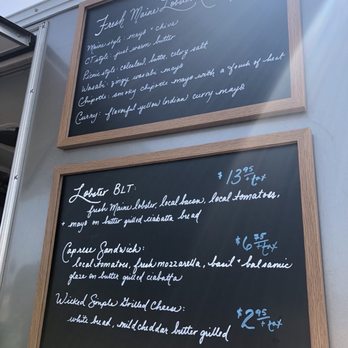 Fresh Maine Lobster
Maine style: mayo + chive
CT style: just warm butter
Picnic style: celery salt
Wasabi: zingy wasabi mayo
Chipotle: smoky chipotle mayo with a touch of heat
Curry: flavorful yellow Indian curry mayo
Lobster BLT: $13.95 + tax
fresh Maine lobster, local bacon, local tomatoes,
+ mayo on butter grilled ciabatta bread
Caprese Sandwich: $6.75 + tax
local tomatoes, fresh mozzarella, basil + balsamic
glaze on butter grilled ciabatta
Wicked Simple Grilled Cheese: $2.95 + tax
white bread, mild cheddar butter grilled